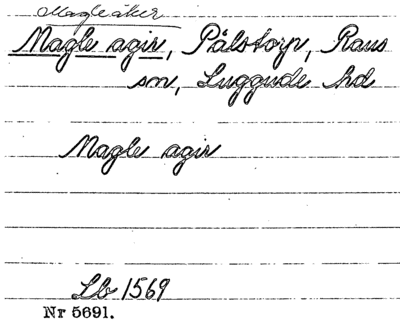 Magleåker
Magle agir, Pålstorp, Raus
sn, Luggude hd
Magle agir
Lb 1569
Nr 5691.